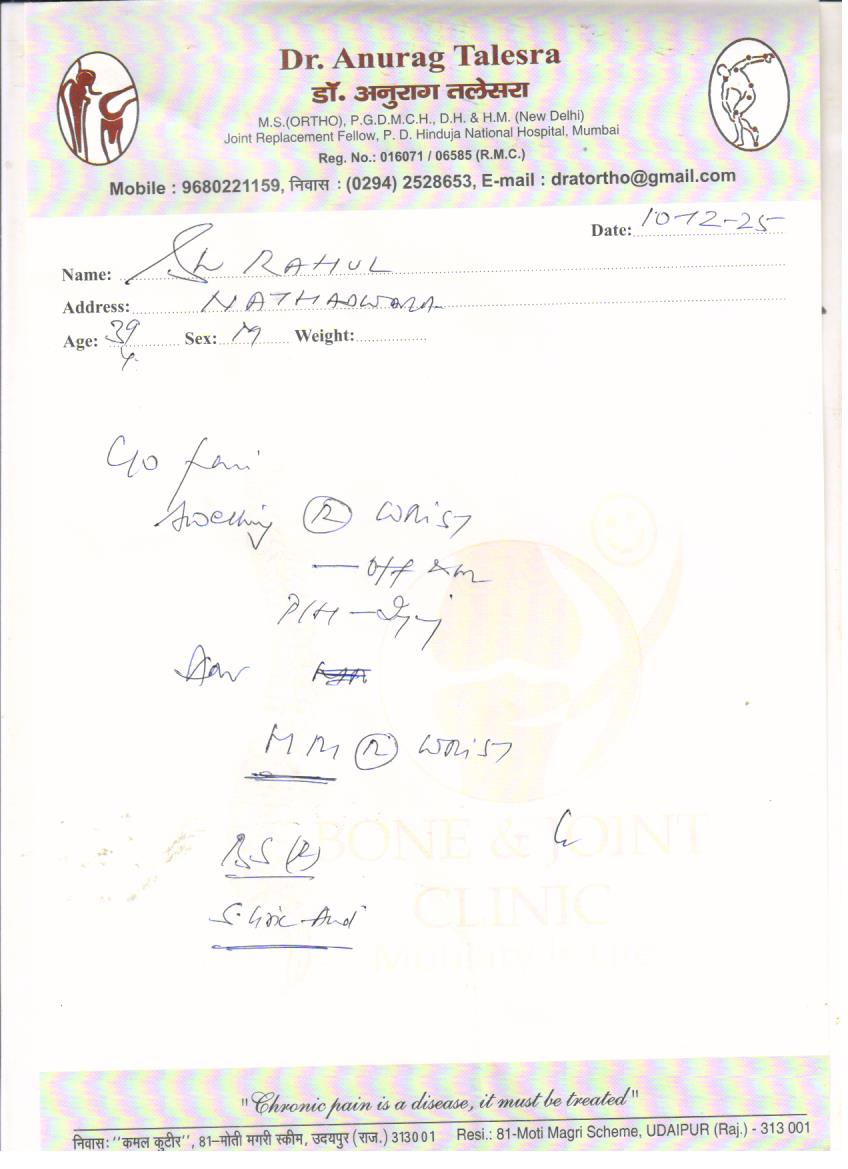 Dr. Anurag Talesra
डॉ. अनुराग तलेसरा
M.S.(ORTHO), P.G.D.M.C.H., D.H. & H.M. (New Delhi)
Joint Replacement Fellow, P. D. Hinduja National Hospital, Mumbai
Reg. No.: 016071 / 06585 (R.M.C.)
Mobile : 9680221159, निवास : (0294) 2528653, E-mail : dratortho@gmail.com
Date: 10-12-25
Name: Sh RAHUL
Address: NATHADWARA
Age: 39 Y Sex: M Weight:
C/O Pain
Swelling (R) WRIST
Adv
(R) WRIST
BS (R)
S. Uric Acid
BONE & JOINT
CLINIC
Mobility is Life
"Chronic pain is a disease, it must be treated"
निवास: ''कमल कूटीर'', 81–मोती मगरी स्कीम, उदयपुर (राज.) 313001 Resi.: 81-Moti Magri Scheme, UDAIPUR (Raj.) - 313 001